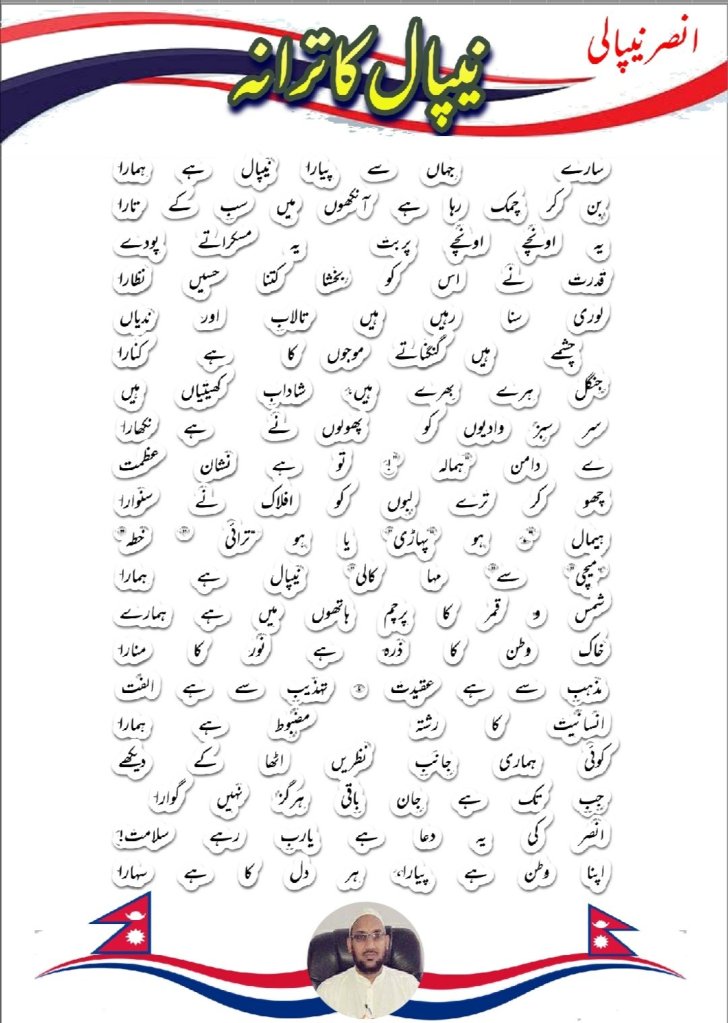 انصر نیپالی
نیپال کا ترانہ
سارے جہاں سے پیارا نیپال ہے ہمارا
بن کر چمک رہا ہے آنکھوں میں سب کے تارا
یہ اونچے اونچے پربت یہ مسکراتے پودے
قدرت نے اس کو بخشا کتنا حسیں نظارا
لوری سنا رہیں ہیں تالاب اور ندیاں
چشمے ہیں گنگناتے موجوں کا ہے کنارا
جنگل ہرے بھرے ہیں، شاداب کھیتیاں ہیں
سر سبز وادیوں کو پھولوں نے ہے نکھارا
ے دامن ہمالہ تو ہے نشان عظمت
چھو کر ترے لبوں کو افلاک نے سنوارا
ہیمال ہو پہاڑی یا ہو ترائی خطہ
میچی سے مہا کالی نیپال ہے ہمارا
شمس و قمر کا پرچم ہاتھوں میں ہے ہمارے
خاک وطن کا ذرہ ہے نور کا منارا
مذہب سے ہے عقیدت تہذیب سے ہے الفت
انسانیت کا رشتہ مضبوط ہے ہمارا
کوئی ہماری جانب نظریں اٹھا کے دیکھے
جب تک ہے جان باقی ہرگز نہیں گوارا
انصر کی یہ دعا ہے یارب رہے سلامت!
اپنا وطن ہے پیارا، ہر دل کا ہے سہارا